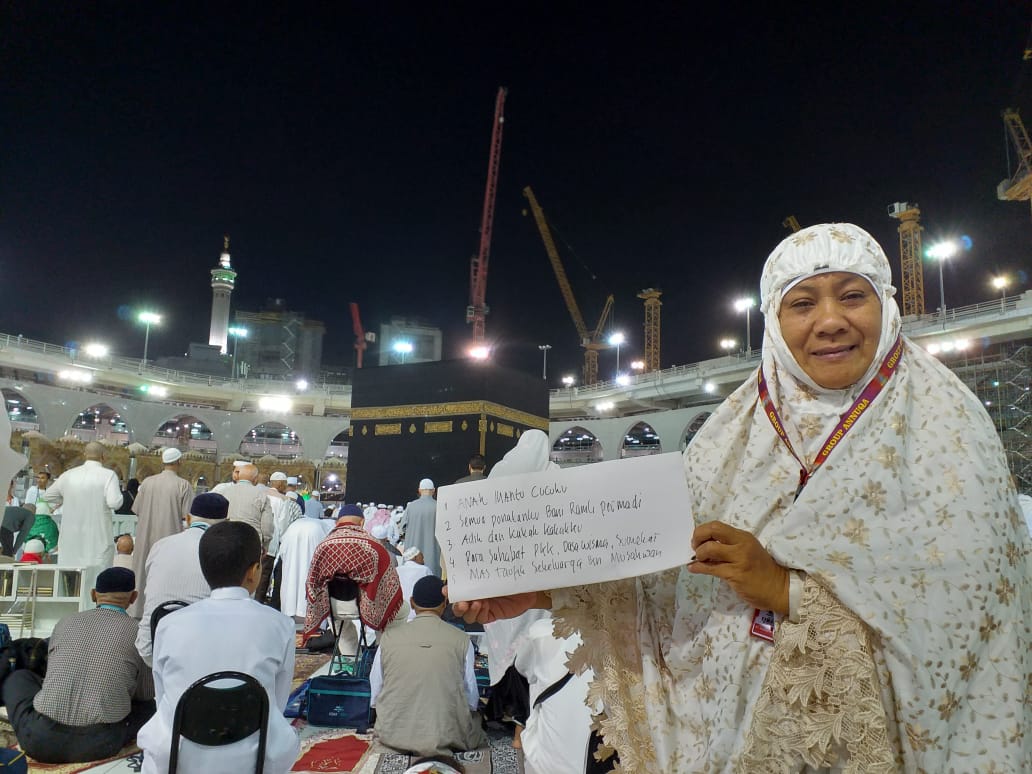 1 ANAK MANTU CUCUKU
2 Semua ponakanku Bani Ramli permadi
3 Adik dan Kakak Kakakku
4 Para Sahabat PKK, Dasawisma, Sumekar
5 MAS taufik Sekeluarga Bin Musahwan
GROUP ANNUQA
GROUP ANNUQA